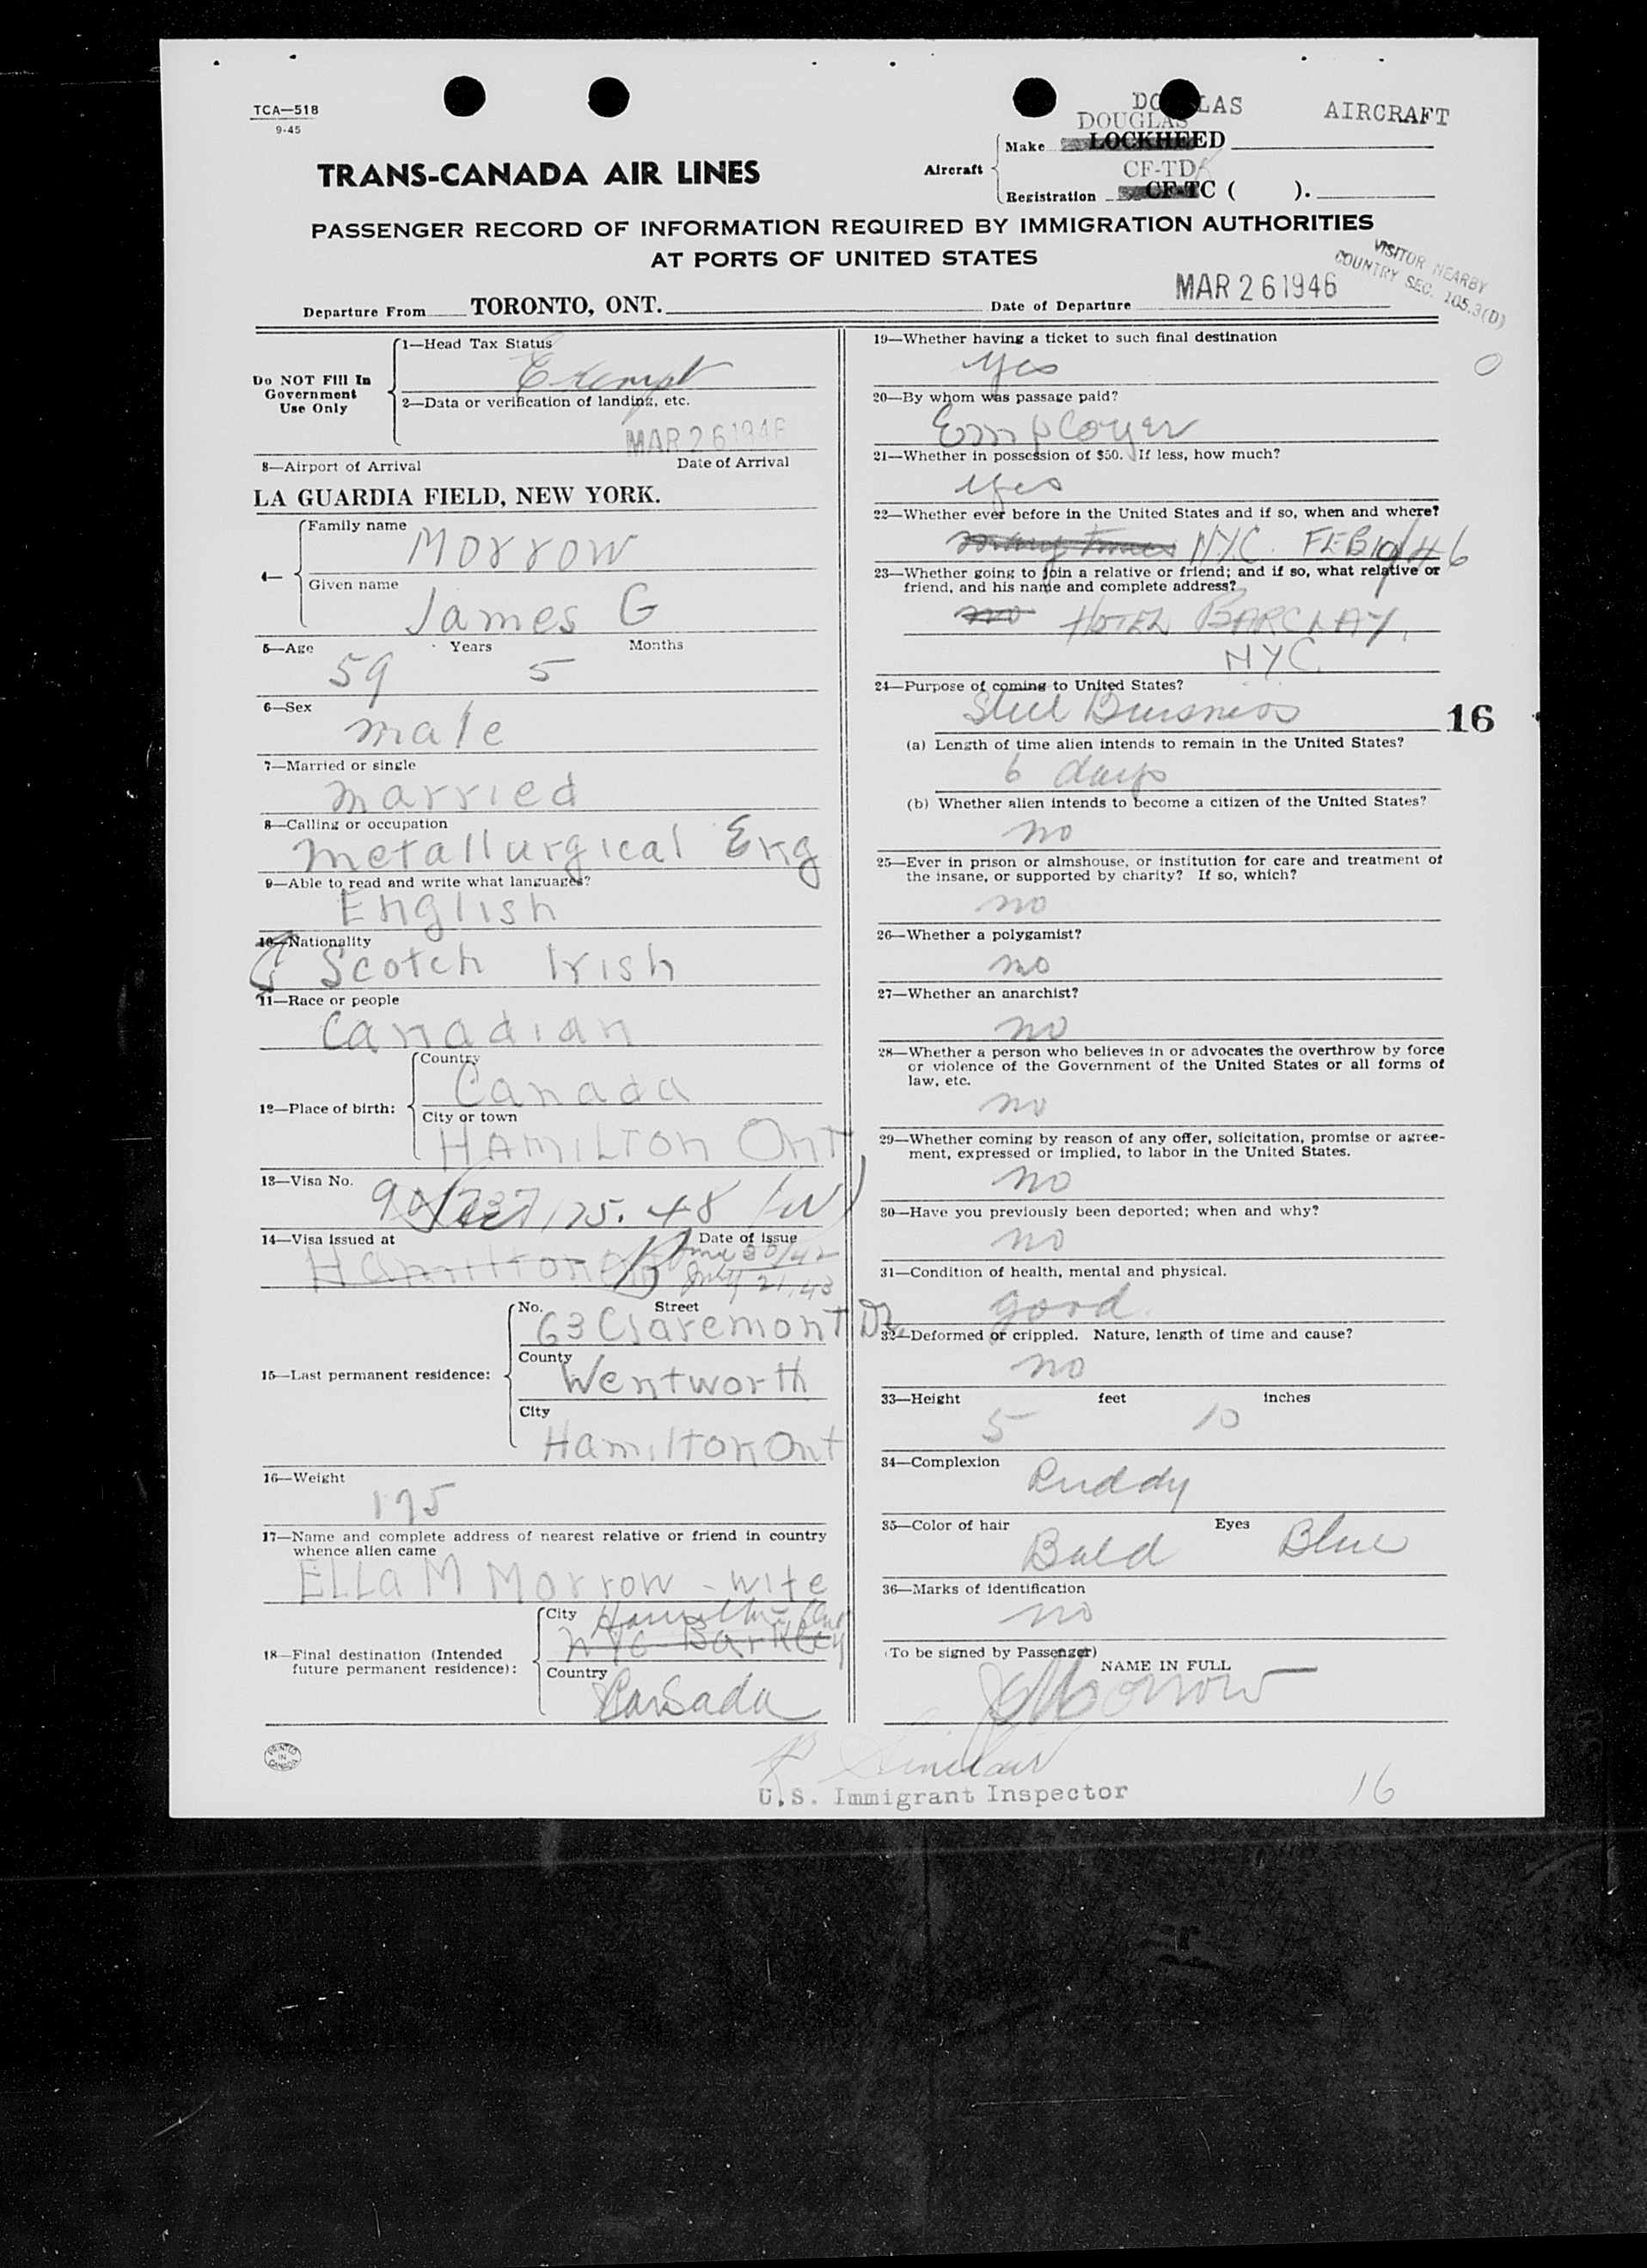 TCA—518
9-45
DOUGLAS AIRCRAFT
DOUGLAS
Make LOCKHEED
Aircraft
CF-TD
Registration CF-TC ( ).
TRANS-CANADA AIR LINES
PASSENGER RECORD OF INFORMATION REQUIRED BY IMMIGRATION AUTHORITIES
AT PORTS OF UNITED STATES
VISITOR NEARBY
COUNTRY SEC. 105.3(D)
Departure From TORONTO, ONT. Date of Departure MAR 26 1946
Do NOT Fill In
Government
Use Only
1—Head Tax Status
Exempt
2—Data or verification of landing, etc.
MAR 26 1946
8—Airport of Arrival Date of Arrival
LA GUARDIA FIELD, NEW YORK.
4—
Family name
Morrow
Given name
James G
5—Age Years Months
59 5
6—Sex
male
7—Married or single
married
8—Calling or occupation
metallurgical Eng
9—Able to read and write what languages?
English
10—Nationality
Scotch Irish
11—Race or people
Canadian
12—Place of birth:
Country
Canada
City or town
HAMILTON ONT
13—Visa No.
14—Visa issued at Date of issue
Hamilton June 30/42
July 21, 43
15—Last permanent residence:
No. Street
63 Claremont Dr
County
Wentworth
City
Hamilton Ont
16—Weight
175
17—Name and complete address of nearest relative or friend in country
whence alien came
Ella M Morrow - wife
18—Final destination (Intended
future permanent residence):
City Hamilton Ont
NYC Barkley
Country
Canada
PRINTED
IN
CANADA
19—Whether having a ticket to such final destination
yes
20—By whom was passage paid?
Employer
21—Whether in possession of $50. If less, how much?
yes
22—Whether ever before in the United States and if so, when and where?
many times NYC. FEB 19/46
23—Whether going to join a relative or friend; and if so, what relative or
friend, and his name and complete address?
no HOTEL BARCLAY,
NYC
24—Purpose of coming to United States?
Steel Buisness
16
(a) Length of time alien intends to remain in the United States?
6 days
(b) Whether alien intends to become a citizen of the United States?
no
25—Ever in prison or almshouse, or institution for care and treatment of
the insane, or supported by charity? If so, which?
no
26—Whether a polygamist?
no
27—Whether an anarchist?
no
28—Whether a person who believes in or advocates the overthrow by force
or violence of the Government of the United States or all forms of
law, etc.
no
29—Whether coming by reason of any offer, solicitation, promise or agree-
ment, expressed or implied, to labor in the United States.
no
30—Have you previously been deported; when and why?
no
31—Condition of health, mental and physical.
good
32—Deformed or crippled. Nature, length of time and cause?
no
33—Height feet inches
5 10
34—Complexion
Ruddy
35—Color of hair Eyes
Bald Blue
36—Marks of identification
no
(To be signed by Passenger)
NAME IN FULL
JG Morrow
Sinclair
U.S. Immigrant Inspector
16